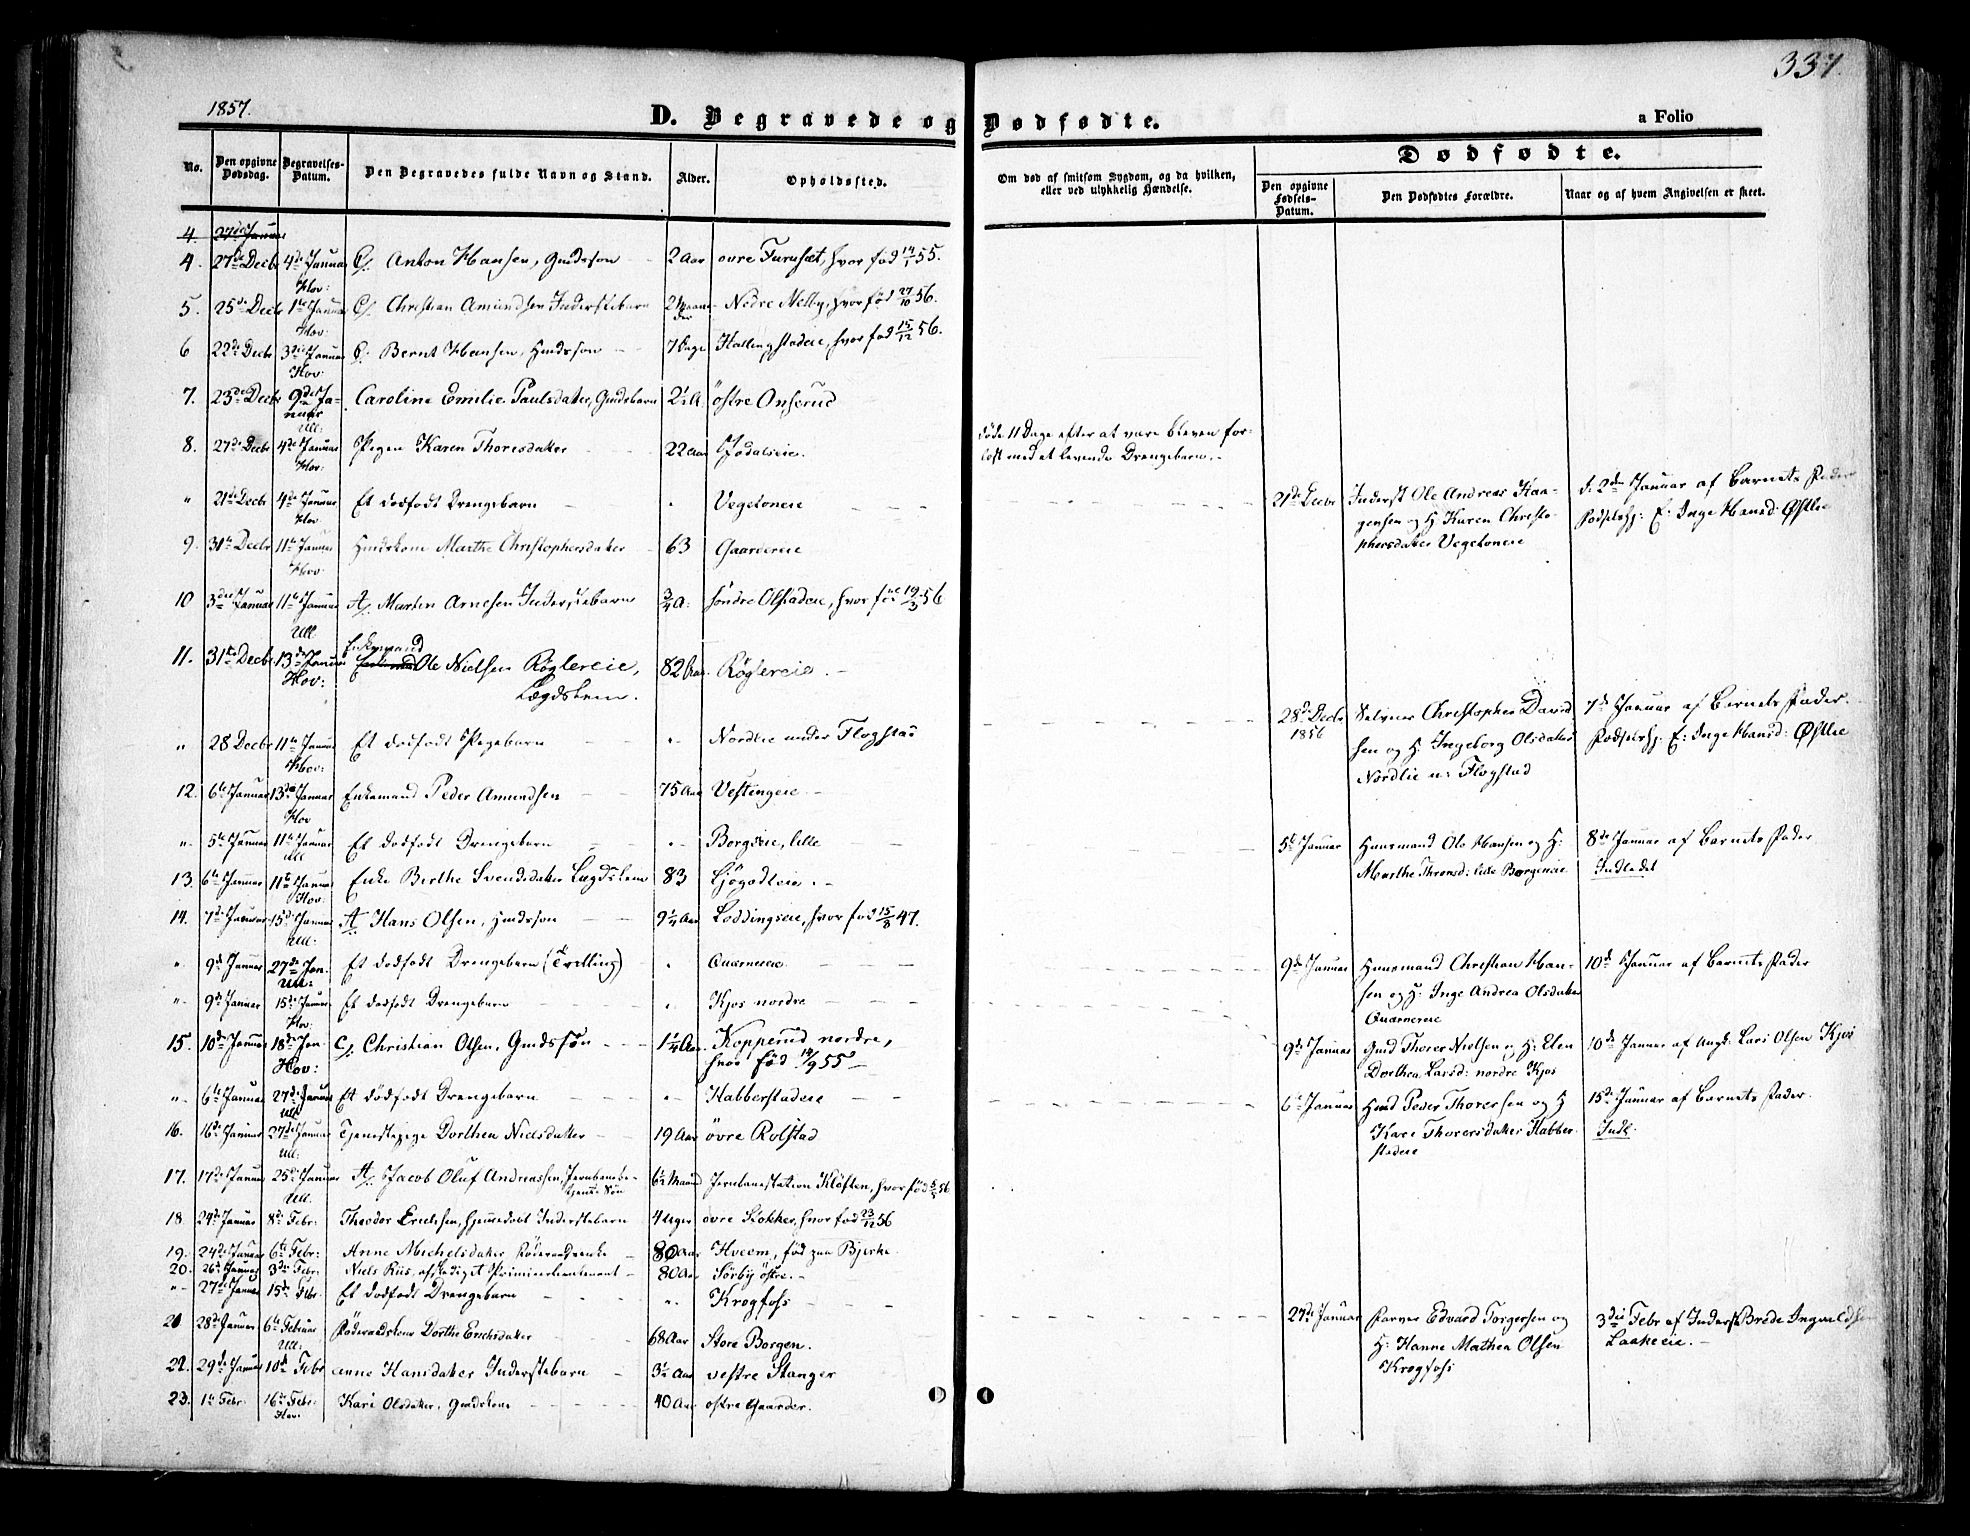 337.
1857.
D. Begravede og Dødfødte.
a Folio
No.
Den opgivne Dødsdag.
Begravelses-Datum.
Den Begravedes fulde Navn og Stand.
Alder.
Opholdssted.
Om død af smitsom Sygdom, og da hvilken, eller ved ulykkelig Hændelse.
Dødfødte.
Den opgivne Fødsels-Datum.
Den Dødfødtes Forældre.
Naar og af hvem Angivelsen er skeet.
4. 27de Januar
4. 27de Decbr 4de Januar Hov: C/. Anton Hansen, Gmdssøn 2 Aar øvre Furuset, hvor fød 14/1 55.
5. 25de Decbr 1te Januar Hov: C/. Christian Amundsen Inderstebarn 2 Maaneder Nedre Melby, hvor fød 27/10 56.
6 22de Decbr 3die Januar Hov: C/. Bernt Hansen, Hmdssøn 7 Dage Hallingstadeie, hvor fød 15/12 56.
7. 23de Decbr 9de Januar Ull: Caroline Emilie Paulsdatter, Gmdsbarn 2½ A: østre Onserud
8. 27de Decbr 4de Januar Hov: Pigen Karen Thoresdatter 22 Aar Jødalseie.
døde 11 Dage efter at være bleven forløst med et levende Drengebarn.
" 21de Decbr 4de Januar Hov Et dødfødt Drengebarn " Vegetoneie
21de Decbr Inderst Ole Andreas Haagensen og H: Karen Christophersdatter Vegetoneie
d. 2den Januar af Barnets Fader
Fødselshj: E: Inge Hansd: Østlie
9. 31te Decbr 11te Januar Hov: Hmdskone Marthe Christophersdatter 63 Gaardereie
10 3die Januar 11te Januar Ull A/. Martin Arnesen Inderstebarn ¾ A: søndre Olstadeie, hvor fød 19/3 56
11. 31te Decbr 13de Januar Hov: Enkemand Ole Nielsen Røglereie, Lægdslem. 82 Aar. Røglereie.
" 28 Decbr 11te Januar Hov: Et dødfødt Pigebarn " Nordlie under Flogstad
28de Decbr 1856 Selveier Christopher Davidsen og H: Ingeborg Olsdatter Nordlie u: Flogstad
7de Januar af Barnets Fader.
Fødselshj: E: Inge Hansd: Østlie
12. 6te Januar 13de Januar Hov Enkemand Peder Amundsen 75 Aar Vestingeie
" 5te Januar 11te Januar Ull Et dødfødt Drengebarn " Borgeneie, lille
5te Januar Huusmand Ole Hansen og H: Marthe Thronsd: lille Borgeneie
8de Januar af Barnets Fader
Indledet
13. 6te Januar 11te Januar Hov: Enke Birthe Svendsdatter Lægdslem 83 Gjøgodteie.
14. 7de Januar 15de Januar Ull: A/. Hans Olsen, Hmdssøn 9¼ Aar Loddingseie, hvor fød 15/8 47.
" 9de Januar 27de Jan. Ull: Et dødfødt Drengebarn (Tvilling) " Quarneeie
9de Januar Huusmand Christian Hansen og H: Inge Andrea Olsdatter Quarneeie
10de Januar af Barnets Fader
" 9de Januar 15de Januar Hov: Et dødfødt Drengebarn " Kjos nordre
9de Januar Gmd Thorer Nielsen og H: Elen Dorthea Larsd: nordre Kjos
10de Januar af Ungk: Lars Olsen Kjos
15. 10de Januar 18de Jan. Hov: C/. Christian Olsen, Gmdssøn 1¼ Aar Kopperud nordre, hvor fød 14/9 55
" 6te Januar 27de Januar Ull Et dødfødt Drengebarn " Habberstadeie
6te Januar Hmd Peder Thoresen og H Kari Thorersdatter Habberstadeie
15de Januar af Barnets Fader.
Indl.
16. 16de Januar 27de Januar Ull: Tjenestepige Dorthea Nielsdatter 19 Aar øvre Rolstad
17. 17de Januar 25de Januar Ull. A/. Jacob Oluf Andreassen, Jernbanebetjents Søn 6½ Maaned Jernbanestation Kløften, hvor fød 56
18. 24de Januar 8de Febr: Theodor Erichsen, hjemmedøbt Inderstebarn 4 Uger øvre Stokker, hvor fød 23/12 56
19. 24de Januar 6te Febr: Anne Michelsdatter Føderaadsenke 80 Aar Hveem, fød paa Bjerke
20. 26de Januar 3die Febr: Niels Riis, afskediget Premierlieutenant 80 Aar Sørby østre.
" 27de Januar 15de Febr. Et dødfødt Drengebarn " Krogfoss
27de Januar Farver Edvard Torgersen og H: Hanne Mathea Olsen Krogfoss
3die Febr af Inderst Brede Ingvaldsen Laakeeie.
21 28de Januar 6te Februar Ull: Føderaadskone Dorthe Erichsdatter 68 Aar Store Borgen.
22. 29de Januar 10de Febr Anne Hansdatter Inderstebarn 3½ Aar vestre Stanger
23. 1te Febr. 16de Febr: Hov: Kari Olsdatter, Gmdskone 40 Aar østre Gaarder.